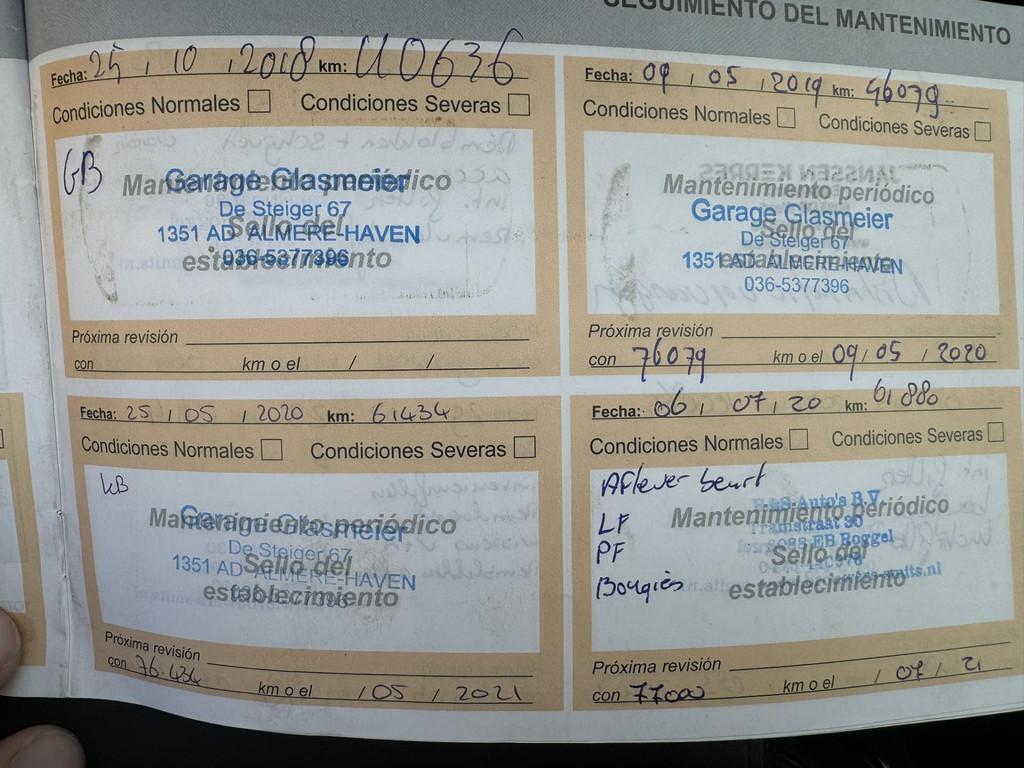 SEGUIMIENTO DEL MANTENIMIENTO
Fecha: 25 / 10 / 2018 km: 40636
Condiciones Normales Condiciones Severas
GB
Mantenimiento periódico
Garage Glasmeier
De Steiger 67
Sello del
1351 AD ALMERE-HAVEN
036-5377396
establecimiento
Próxima revisión
con km o el / /
Fecha: 09 / 05 / 2019 km: 46079
Condiciones Normales Condiciones Severas
JANSSEN KERRES
Mantenimiento periódico
Garage Glasmeier
Sello del
De Steiger 67
1351 AD ALMERE-HAVEN
establecimiento
036-5377396
Próxima revisión
con 76079 km o el 09 / 05 / 2020
Fecha: 25 / 05 / 2020 km: 61434
Condiciones Normales Condiciones Severas
Mantenimiento periódico
Garage Glasmeier
De Steiger 67
Sello del
1351 AD ALMERE-HAVEN
036-5377396
establecimiento
Próxima revisión
con 76.434 km o el / 05 / 2021
Fecha: 06 / 07 / 20 km: 61880
Condiciones Normales Condiciones Severas
Aflever beurt
Auto's B.V.
LF
Mantenimiento periódico
30
PF
Roggel
Sello del
Bougies
establecimiento
Próxima revisión
con 77000 km o el / 07 / 21